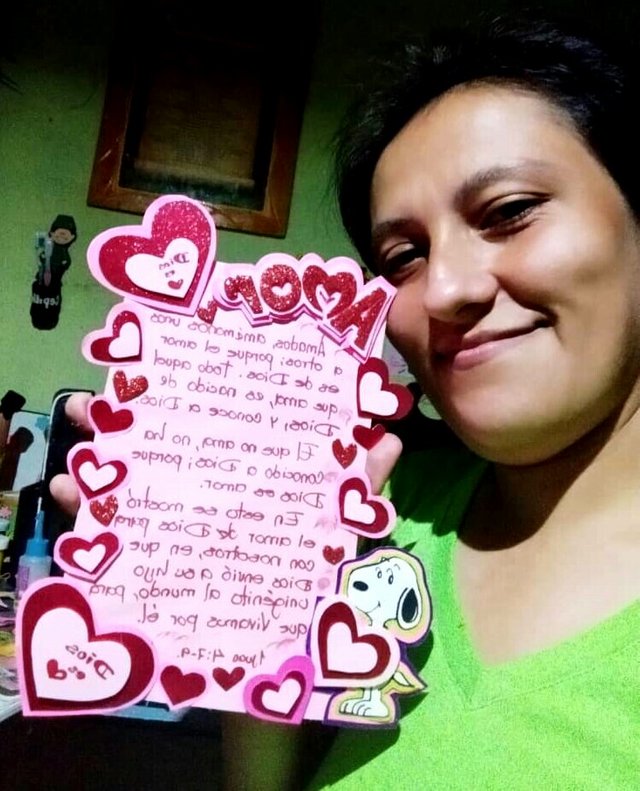 AMOR
Dios
es
Amados, amémonos unos
a otros; porque el amor
es de Dios. Todo aquel
que ama, es nacido de
Dios; y conoce a Dios.
El que no ama, no ha
conocido a Dios; porque
Dios es amor.
En esto se mostró
el amor de Dios para
con nosotros, en que
Dios envió a su hijo
unigénito al mundo, para
que Vivamos por él.
1 Juan 4:7-9
Dios
es